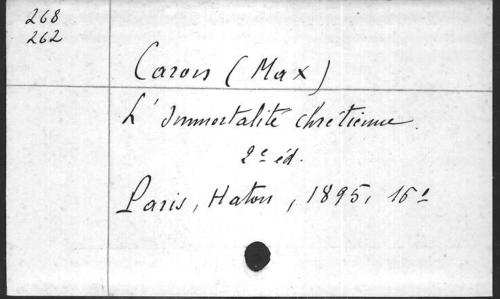 268
262
Caron (Max)
L'Immortalité chrétienne.
2e éd.
Paris, Haton, 1895, 16°